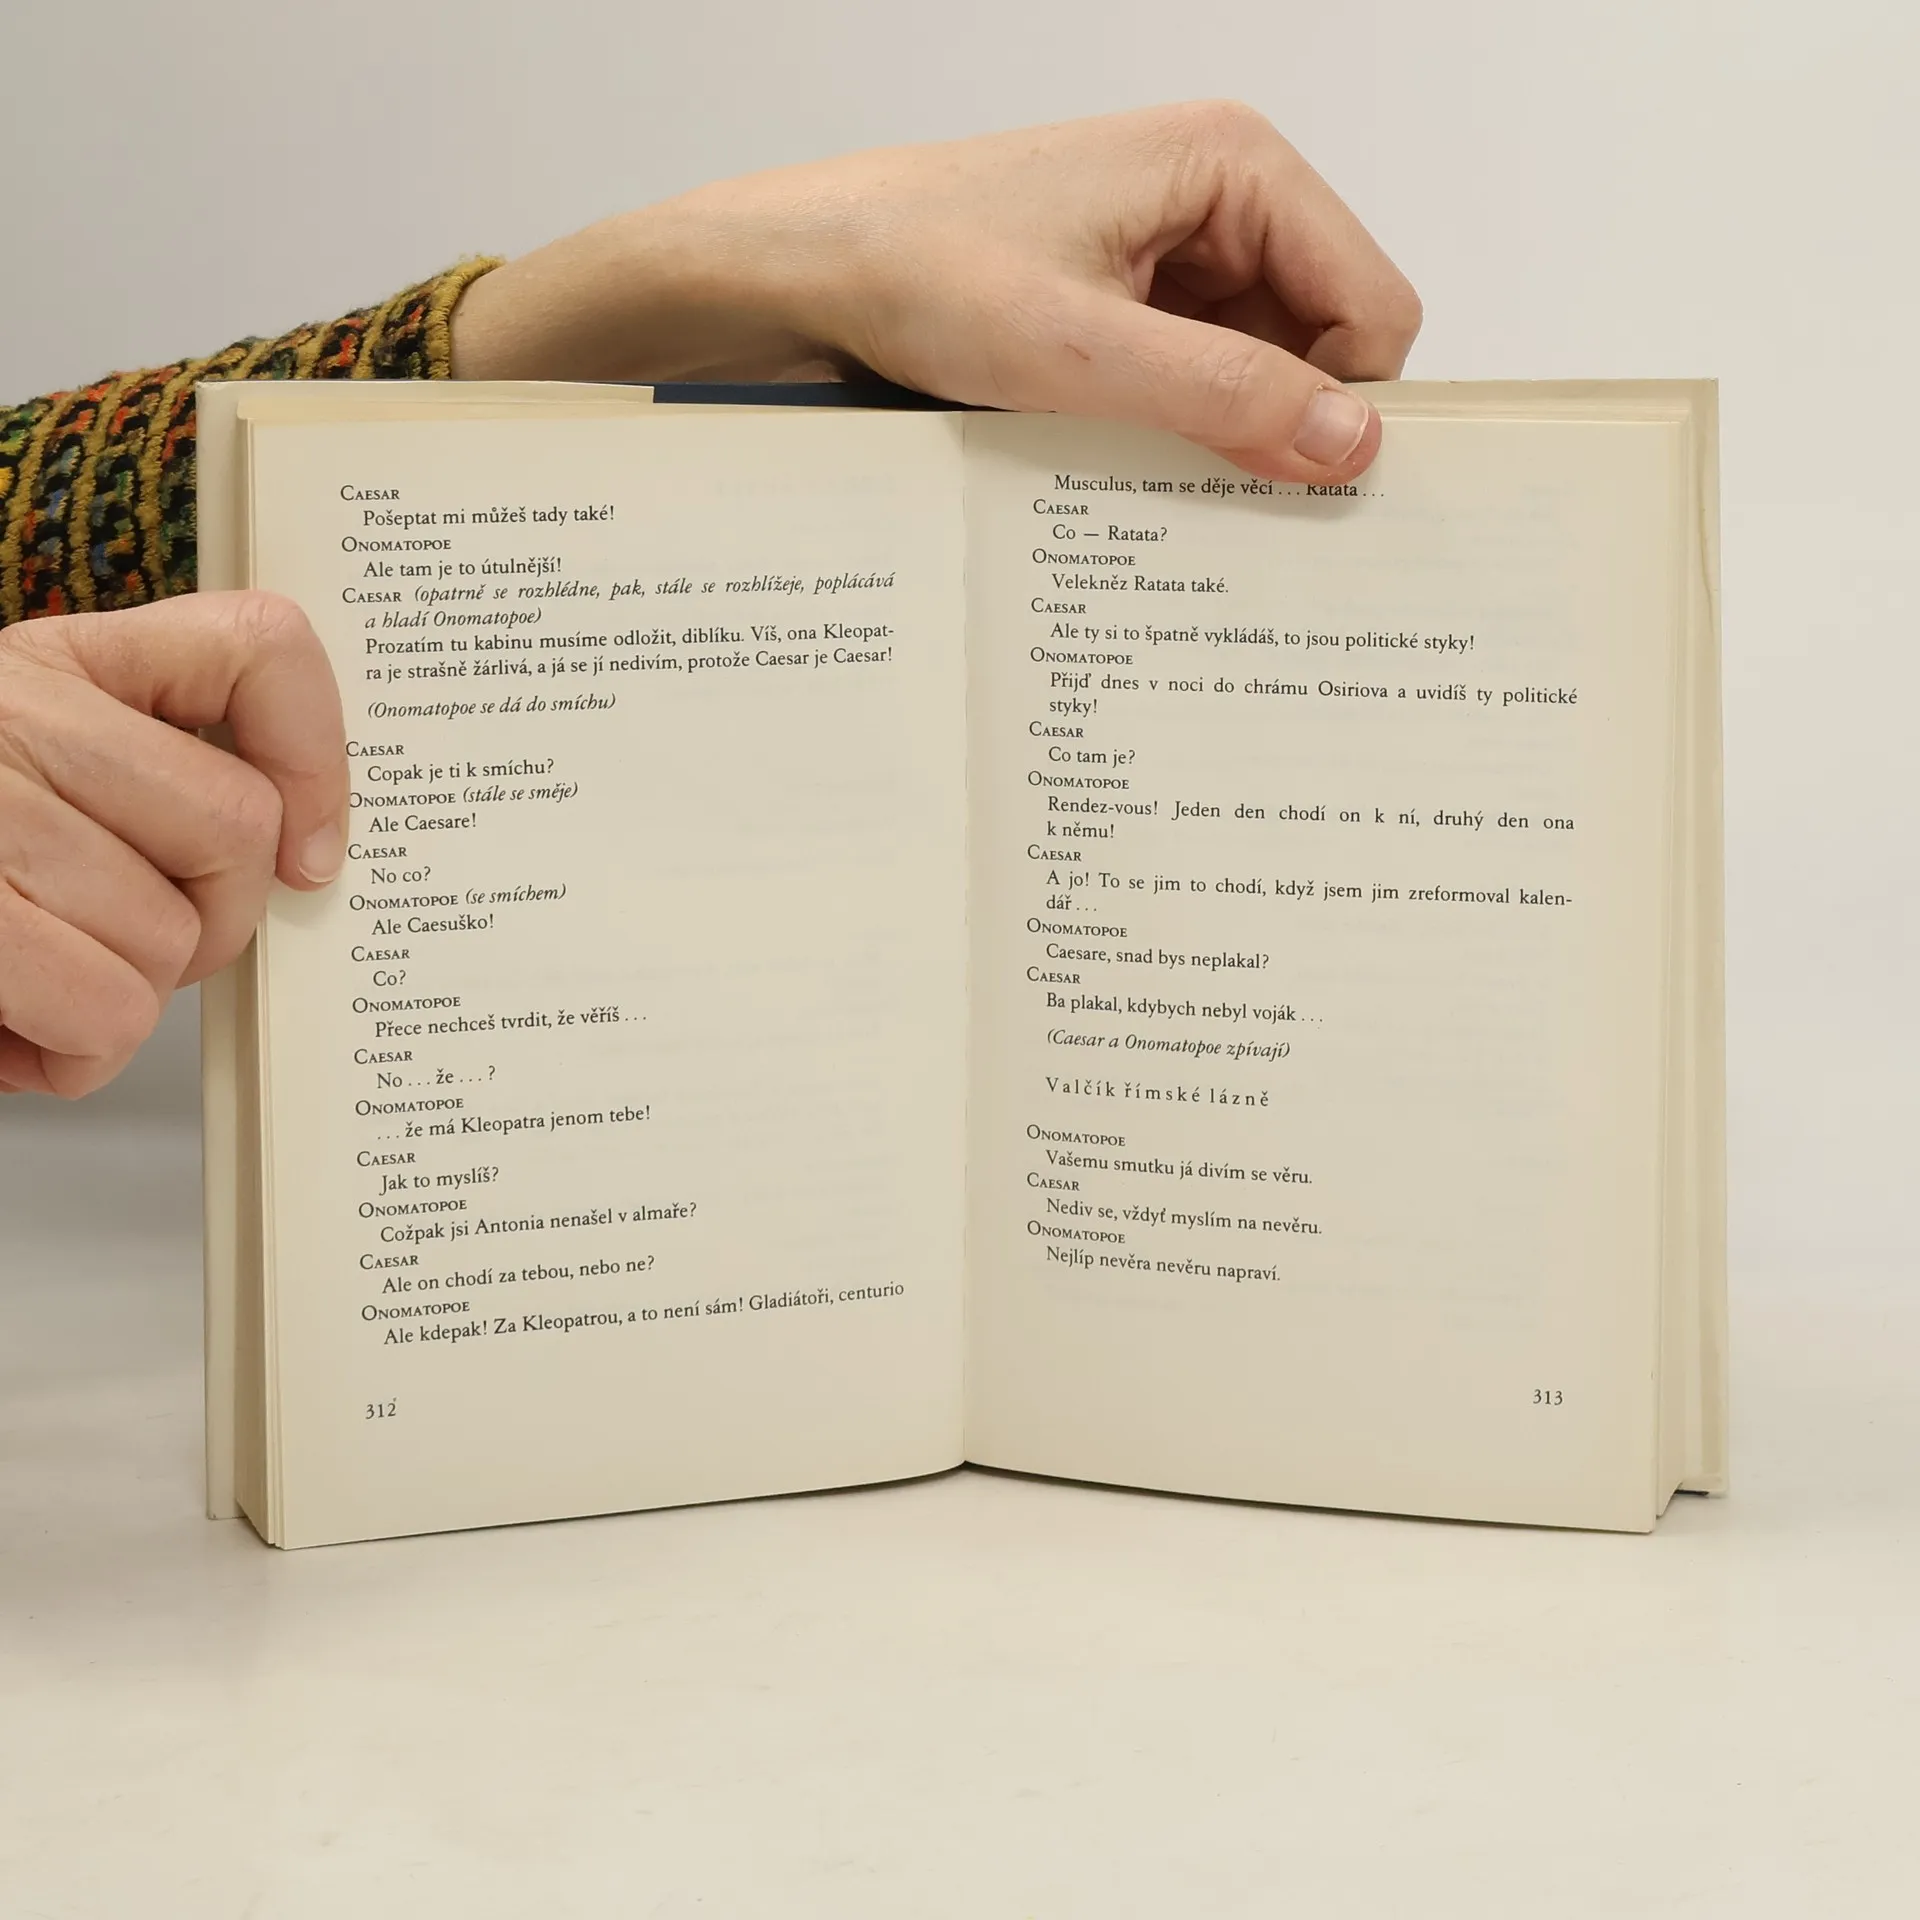 CAESAR
Pošeptat mi můžeš tady také!
ONOMATOPOE
Ale tam je to útulnější!
CAESAR (opatrně se rozhlédne, pak, stále se rozhlížeje, poplácává
a hladí Onomatopoe)
Prozatím tu kabinu musíme odložit, diblíku. Víš, ona Kleopat-
ra je strašně žárlivá, a já se jí nedivím, protože Caesar je Caesar!
(Onomatopoe se dá do smíchu)
CAESAR
Copak je ti k smíchu?
ONOMATOPOE (stále se směje)
Ale Caesare!
CAESAR
No co?
ONOMATOPOE (se smíchem)
Ale Caesuško!
CAESAR
Co?
ONOMATOPOE
Přece nechceš tvrdit, že věříš . . .
CAESAR
No . . . že . . . ?
ONOMATOPOE
. . . že má Kleopatra jenom tebe!
CAESAR
Jak to myslíš?
ONOMATOPOE
Cožpak jsi Antonia nenašel v almaře?
CAESAR
Ale on chodí za tebou, nebo ne?
ONOMATOPOE
Ale kdepak! Za Kleopatrou, a to není sám! Gladiátoři, centurio
312
Musculus, tam se děje věcí . . . Ratata . . .
CAESAR
Co — Ratata?
ONOMATOPOE
Velekněz Ratata také.
CAESAR
Ale ty si to špatně vykládáš, to jsou politické styky!
ONOMATOPOE
Přijď dnes v noci do chrámu Osiriova a uvidíš ty politické
styky!
CAESAR
Co tam je?
ONOMATOPOE
Rendez-vous! Jeden den chodí on k ní, druhý den ona
k němu!
CAESAR
A jo! To se jim to chodí, když jsem jim zreformoval kalen-
dář . . .
ONOMATOPOE
Caesare, snad bys neplakal?
CAESAR
Ba plakal, kdybych nebyl voják . . .
(Caesar a Onomatopoe zpívají)
Valčík římské lázně
ONOMATOPOE
Vašemu smutku já divím se věru.
CAESAR
Nediv se, vždyť myslím na nevěru.
ONOMATOPOE
Nejlíp nevěra nevěru napraví.
313